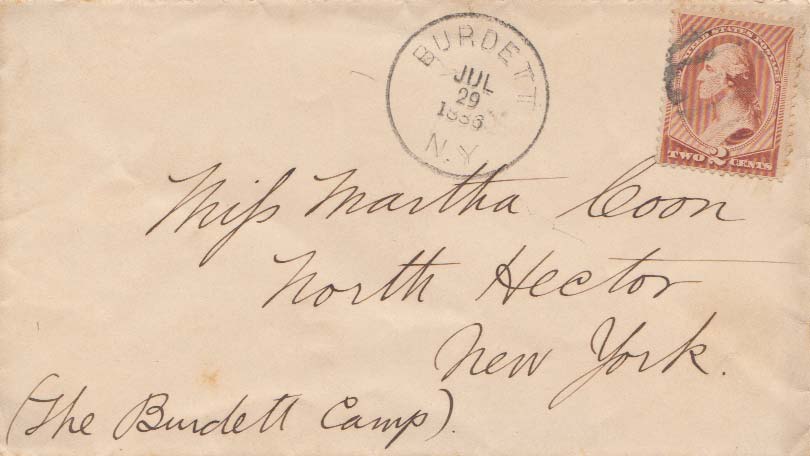 BURDETT
JUL
29
1886
N.Y.
UNITED STATES POSTAGE
TWO 2 CENTS
Miss Martha Coon
North Hector
New York.
(The Burdett Camp).